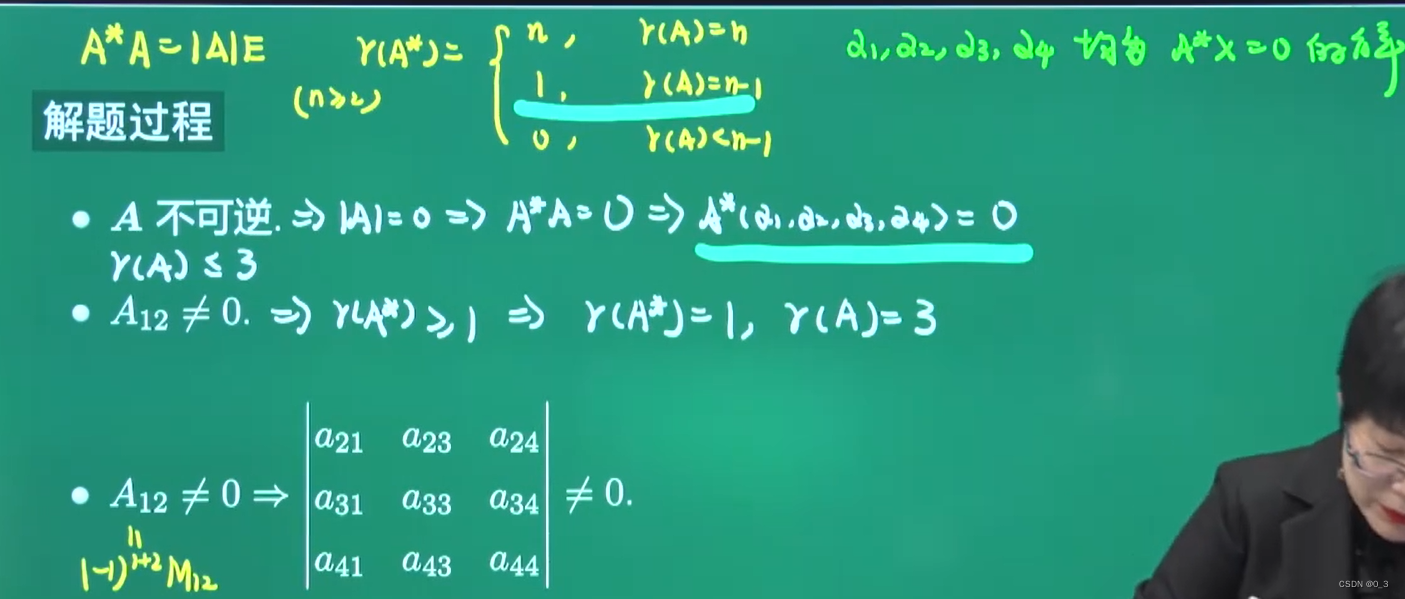 A*A=|A|E
r(A*)= { n, r(A)=n
1, r(A)=n-1
0, r(A)<n-1
(n≥2)
α1,α2,α3,α4 均为 A*X=0 的解
解题过程
• A 不可逆. ⇒ |A|=0 ⇒ A*A=0 ⇒ A*(α1,α2,α3,α4)=0
r(A) ≤ 3
• A12 ≠ 0. ⇒ r(A*) ≥ 1 ⇒ r(A*)=1, r(A)=3
• A12 ≠ 0 ⇒ | a21 a23 a24 |
| a31 a33 a34 | ≠ 0.
| a41 a43 a44 |
=
(-1)^1+2 M12
CSDN @0_3